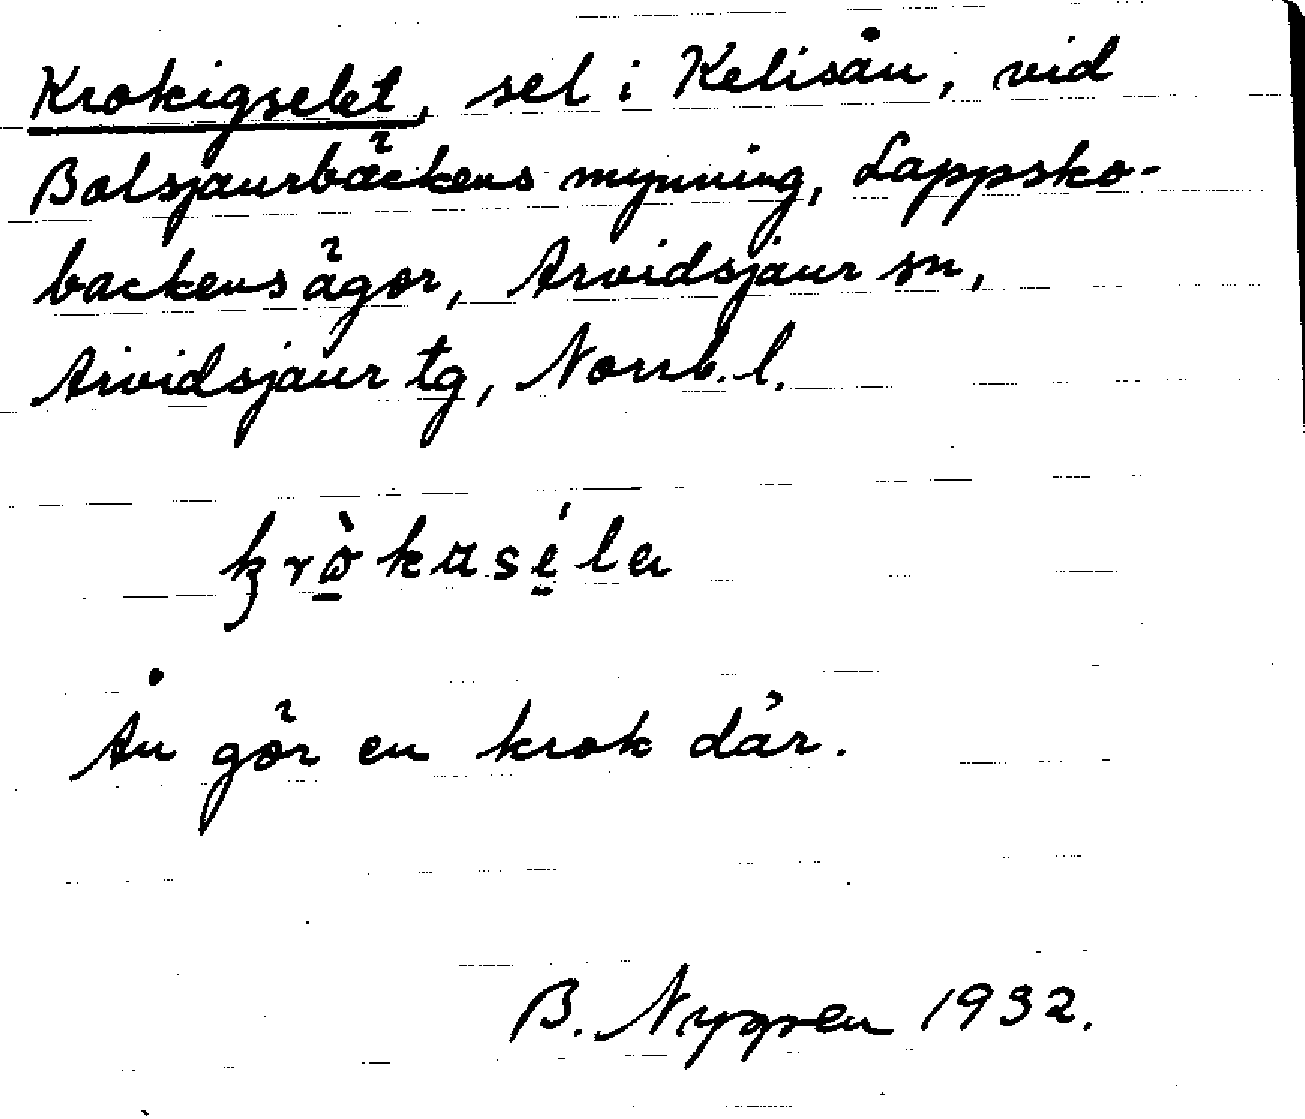 Krokigselet, sel i Kelisån, vid
Bolsjaurbäckens mynning, Lappsko-
backens ägor, Arvidsjaur sn,
Arvidsjaur tg, Norrb. l.
krò̠kasé̠la
Ån gör en krok där.
B. Nygren 1932.